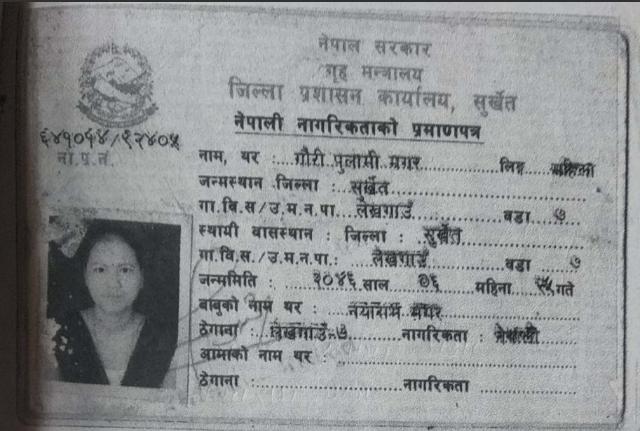 नेपाल सरकार
गृह मन्त्रालय
जिल्ला प्रशासन कार्यालय, सुर्खेत
नेपाली नागरिकताको प्रमाणपत्र
६४१०६४/१२४०५
ना.प्र.नं.
नाम, थर : गौरी पुलामी मगर लिङ्ग महिला
जन्मस्थान जिल्ला : सुर्खेत
गा.वि.स/उ.म.न.पा. लेखगाउँ वडा ७
स्थायी बासस्थान : जिल्ला : सुर्खेत
गा.वि.स/उ.म.न.पा.: लेखगाउँ वडा ७
जन्ममिति : २०४६ साल ०६ महिना गते
बाबुको नाम थर : मगर
ठेगाना : लेखगाउँ-७ नागरिकता : नेपाली
आमाको नाम थर :
ठेगाना : नागरिकता